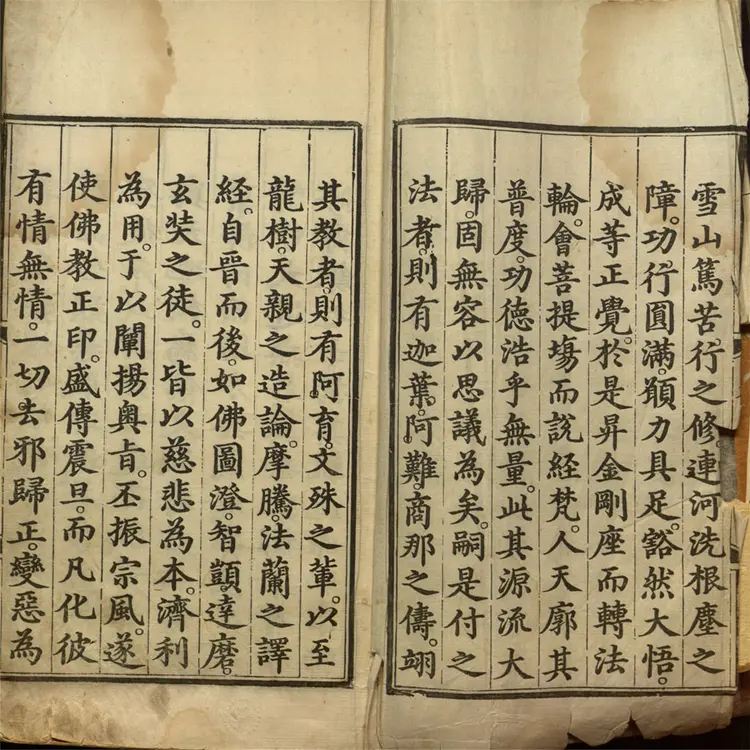 雪山篤苦行之修。連河洗根塵之
障。功行圓滿。願力具足。豁然大悟。
成等正覺。於是昇金剛座而轉法
輪。會菩提塲而說經梵。人天廓其
普度。功德浩乎無量。此其源流大
歸。固無容以思議為矣。嗣是付之
法者。則有迦葉。阿難。商那之儔。翊
其教者。則有阿育。文殊之輩。以至
龍樹。天親之造論。摩騰。法蘭之譯
經。自晉而後。如佛圖澄。智顗。達磨。
玄奘之徒。一皆以慈悲為本。濟利
為用。于以闡揚奧旨。丕振宗風。遂
使佛教正印。盛傳震旦。而凡化彼
有情無情。一切去邪歸正。變惡為